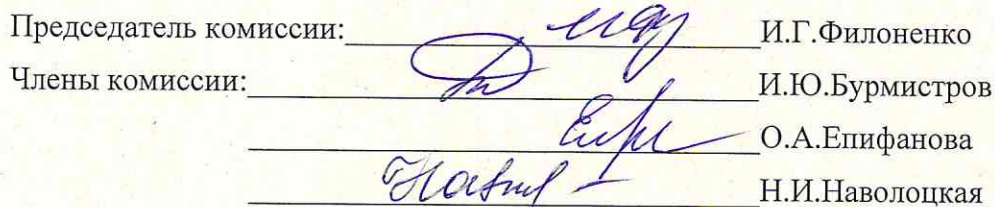 Председатель комиссии: И.Г.Филоненко
Члены комиссии: И.Ю.Бурмистров
О.А.Епифанова
Н.И.Наволоцкая